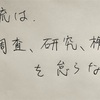 流は.
調査、研究、検
を怠らな